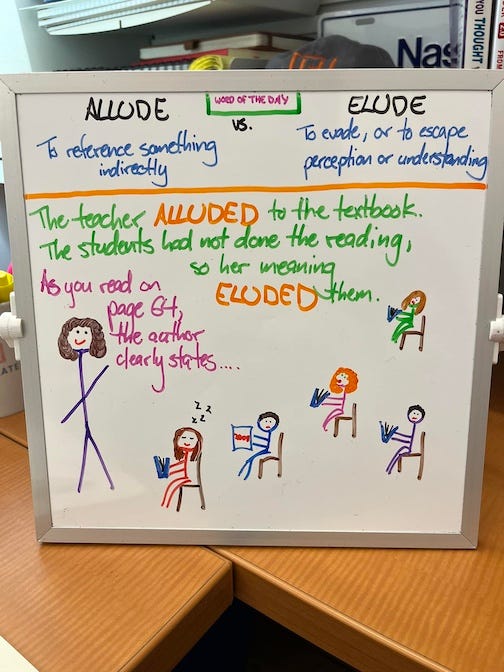 YOU THOUGHT
FROM
Nas
WORD OF THE DAY
ALLUDE vs. ELUDE
To reference something
indirectly
To evade, or to escape
perception or understanding
The teacher ALLUDED to the textbook.
The students had not done the reading,
so her meaning
ELUDED them.
As you read on
page 64,
the author
clearly states....
z z
z z